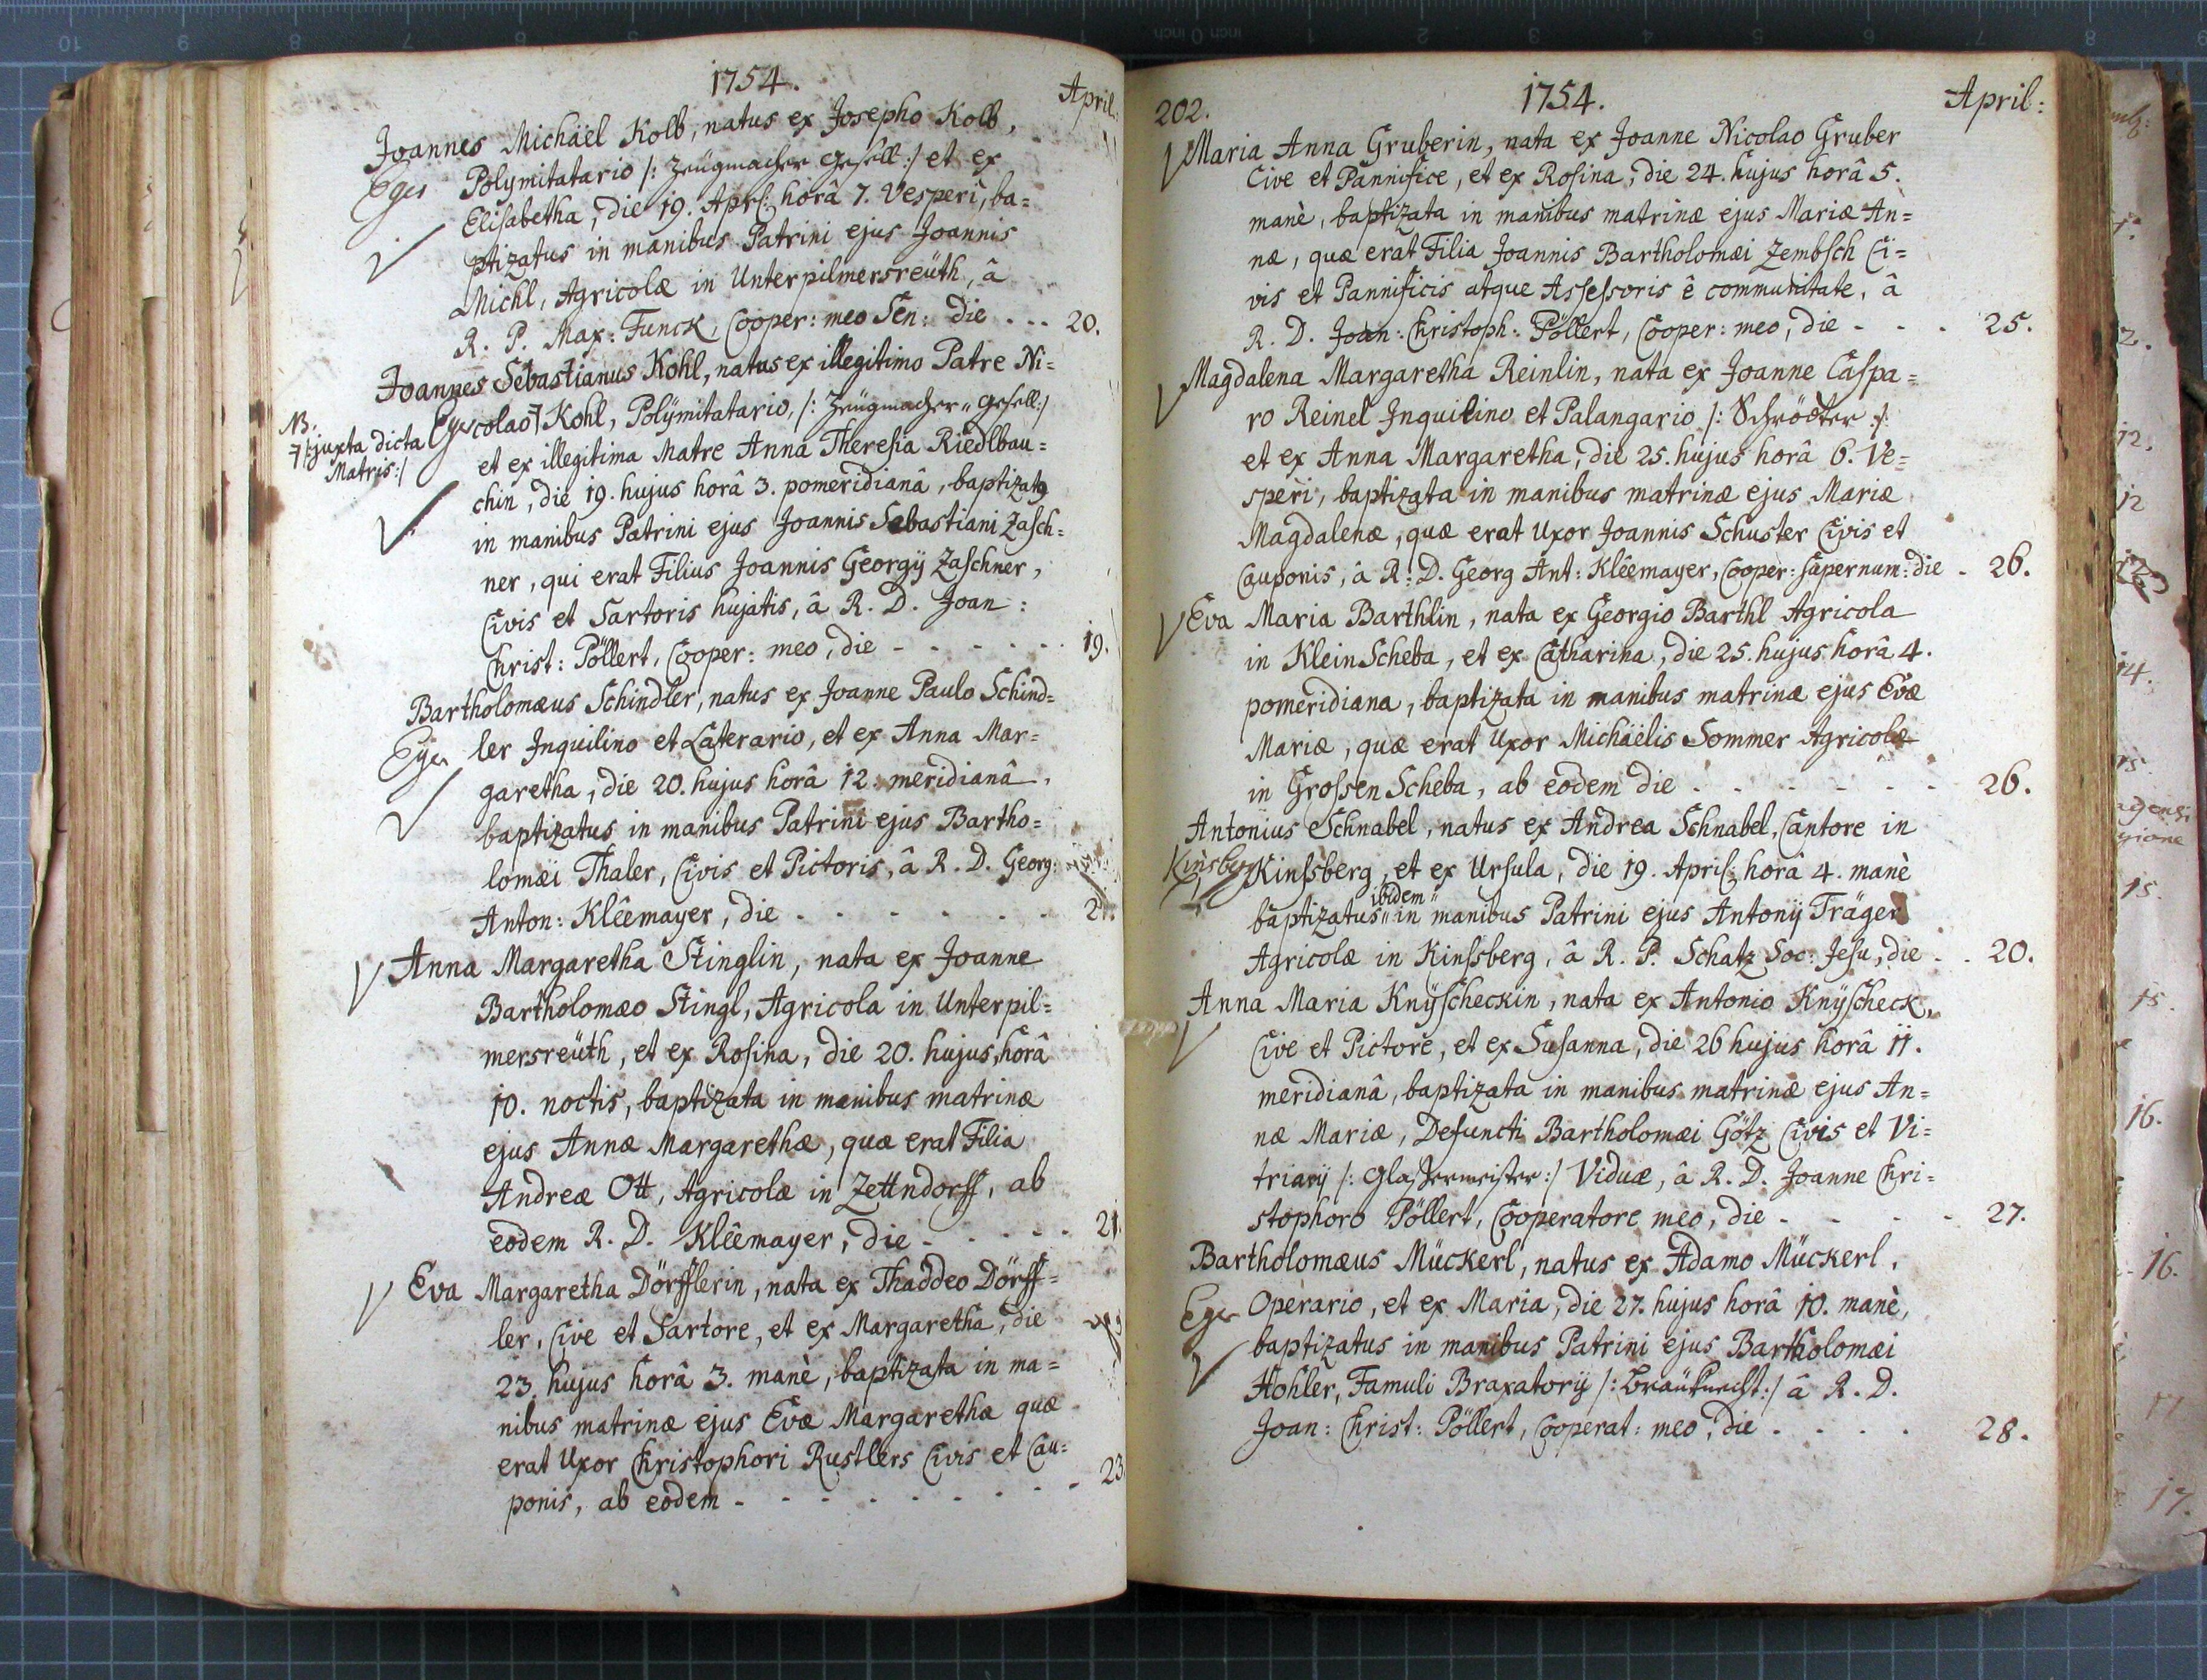 1754.
April:
Joannes Michäel Kolb, natus ex Josepho Kolb,
Eger Polymitatario /: Zeügmacher gesell :/ et ex
Elisabetha, die 19. Apri: horâ 7. Vesperi, ba=
ptizatus in manibus Patrini ejus Joannis
Michl, Agricolæ in Unterpilmersreüth, â
R. P. Max: Funck, Cooper: meo Sen: die . . . 20.
Joannes Sebastianus Kohl, natus ex illegitimo Patre Ni=
Eger colao Kohl, Polÿmitatario, /: Zeügmacher gesell :/
NB.
/:juxta dicta
Matris:/
et ex illegitima Matre Anna Theresia Riedlbau=
chin, die 19. hujus horâ 3. pomeridianâ, baptizatq
in manibus Patrini ejus Joannis Sebastiani Zasch=
ner, qui erat Filius Joannis Georgÿ Zaschner,
Civis et Sartoris hujatis, â R. D. Joan:
Christ: Pöllert, Cooper: meo, die - - - - - 19.
Bartholomæus Schindler, natus ex Joanne Paulo Schind=
Eger ler Inquilino et Laterario, et ex Anna Mar=
garetha, die 20. hujus horâ 12. meridianâ,
baptizatus in manibus Patrini ejus Bartho=
lomæi Thaler, Civis et Pictoris, â R. D. Georg:
Anton: Klêemayer, die . . . . . . 21.
Anna Margaretha Stinglin, nata ex Joanne
Bartholomæo Stingl, Agricola in Unterpil=
mersreüth, et ex Rosina, die 20. hujus, horâ
10. noctis, baptizata in manibus matrinæ
ejus Annæ Margarethæ, quæ erat Filia
Andreæ Ott, Agricolæ in Zettndorff, ab
eodem R. D. Klêemayer, die - - - - 21.
Eva Margaretha Dörfflerin, nata ex Thaddeo Dörff=
ler, Cive et Sartore, et ex Margaretha, die
23. hujus horâ 3. manè, baptizata in ma=
nibus matrinæ ejus Evæ Margarethæ quæ
erat Uxor Christophori Rustlers Civis et Cau=
ponis, ab eodem - - - - - - - - 23
202.
1754.
April:
Maria Anna Gruberin, nata ex Joanne Nicolao Gruber
Cive et Pannifice, et ex Rosina, die 24. hujus horâ 5.
manè, baptizata in manibus matrinæ ejus Mariæ An=
næ, quæ erat Filia Joannis Bartholomæi Zembsch Ci=
vis et Pannificis atque Assessoris ê communitate, â
R. D. Joan: Christoph: Pöllert, Cooper: meo, die - - - 25.
Magdalena Margaretha Reinlin, nata ex Joanne Caspa=
ro Reinel Inquilino et Palangario /: Schrödter :/
et ex Anna Margaretha, die 25. hujus horâ 6. Ve=
speri, baptizata in manibus matrinæ ejus Mariæ
Magdalenæ, quæ erat Uxor Joannis Schuster Civis et
Cauponis, â R: D. Georg Ant: Klêemayer, Cooper: supernum: die - 26.
Eva Maria Barthlin, nata ex Georgio Barthl Agricola
in KleinScheba, et ex Catharina, die 25. hujus horâ 4.
pomeridiana, baptizata in manibus matrinæ ejus Evæ
Mariæ, quæ erat Uxor Michäelis Sommer Agricolæ
in GrossenScheba, ab eodem die - - - - - - - 26.
Antonius Schnabel, natus ex Andrea Schnabel, Cantore in
Kinsberg Kinssberg, et ex Ursula, die 19. April: horâ 4. manè
ibidem
baptizatus in manibus Patrini ejus Antonÿ Träger
Agricolæ in Kinssberg, â R. P. Schatz Soc: Jesu, die . . 20.
Anna Maria Knÿscheckin, nata ex Antonio Knÿscheck,
Cive et Pictore, et ex Susanna, die 26 hujus horâ 11.
meridianâ, baptizata in manibus matrinæ ejus An=
næ Mariæ, Defuncti Bartholomæi Götz Civis et Vi=
triarÿ /: Glasermeister :/ Viduæ, â R. D. Joanne Chri=
stophoro Pöllert, Cooperatore meo, die - - - - 27.
Bartholomæus Mückerl, natus ex Adamo Mückerl,
Eger Operario, et ex Maria, die 27. hujus horâ 10. manè,
baptizatus in manibus Patrini ejus Bartholomæi
Höhler, Famuli Braxatorÿ /: Braüknecht :/ â R. D.
Joan: Christ: Pöllert, Cooperat: meo, die . . . . 28.